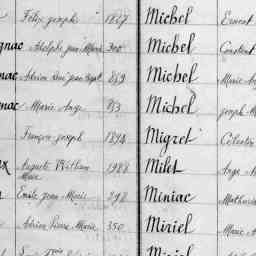 Félix Joseph 1827 Michel Ernest
gnac Adolphe Jean Marie 300 Michel Constant
nac Adrien René Jean Bapt. 849 Michel Marie
nac Marie Ange 953 Michel Joseph M
François Joseph 1894 Migret Célestin
x Auguste William Marie 1988 Milet Ange
Emile Jean Marie 298 Miniac Mathurin
Adrien Pierre Marie 350 Miriel Marie A